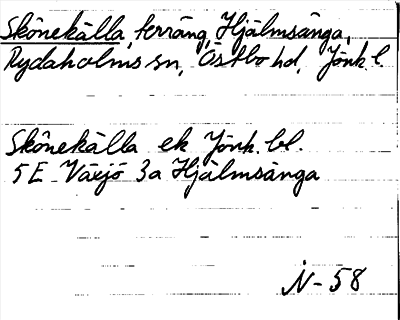 Skônekälla, terräng, Hjälmsänga,
Rydaholms sn, Östbo hd, Jönk. l.
Skônekälla ek Jönk. bl.
5 E Växjö 3a Hjälmsänga
N-58